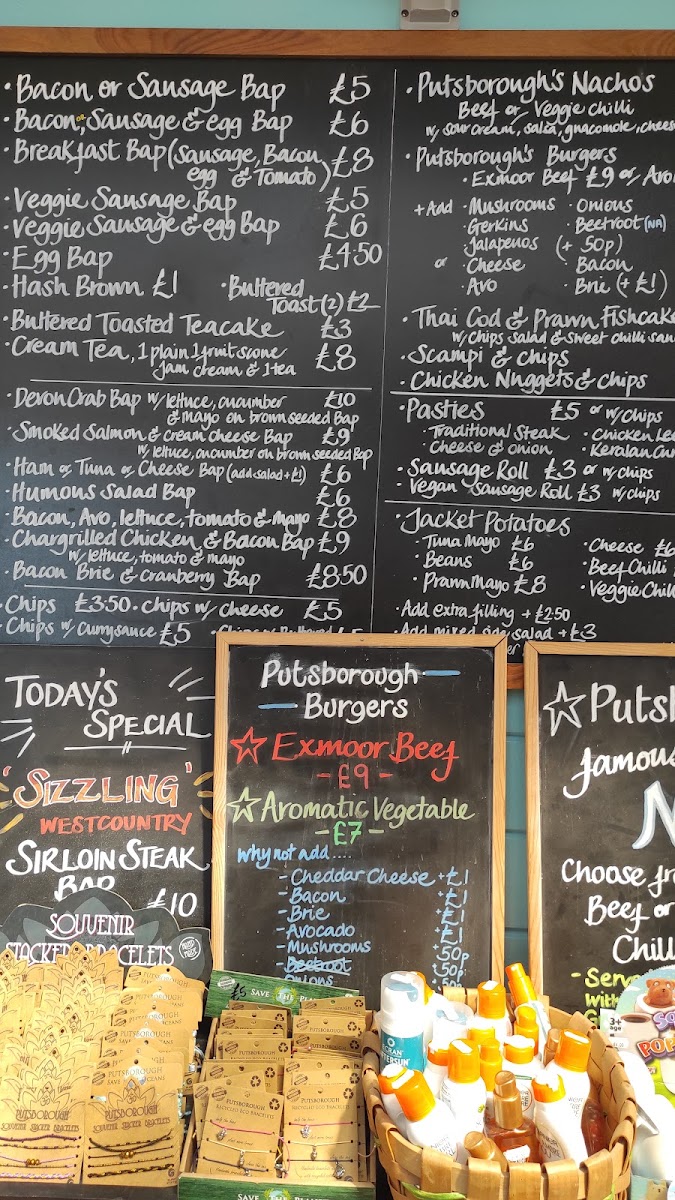 · Bacon or Sausage Bap £5
· Bacon or Sausage & egg Bap £6
· Breakfast Bap (Sausage, Bacon, egg & Tomato) £8
· Veggie Sausage Bap £5
· Veggie Sausage & egg Bap £6
· Egg Bap £4·50
· Hash Brown £1 · Buttered Toast (2) £2
· Buttered Toasted Teacake £3
· Cream Tea, 1 plain 1 fruit scone £8
Jam cream & 1 tea
· Devon Crab Bap w/ lettuce, cucumber £10
& mayo on brown seeded Bap
· Smoked Salmon & cream cheese Bap £9
w/ lettuce, cucumber on brown seeded Bap
· Ham or Tuna or Cheese Bap (add salad + £1) £6
· Humous Salad Bap £6
· Bacon, Avo, lettuce, tomato & mayo £8
· Chargrilled Chicken & Bacon Bap £9
w/ lettuce, tomato & mayo
· Bacon Brie & Cranberry Bap £8·50
· Chips £3·50 · chips w/ cheese £5
· Chips w/ Curry sauce £5
· Putsborough's Nachos
Beef or Veggie Chilli
w/ sour cream, salsa, guacomole, chees
· Putsborough's Burgers
· Exmoor Beef £9 or Aro
+ Add · Mushrooms · Onions
· Gerkins · Beetroot (NA)
· Jalapenos (+ 50p)
or · Cheese · Bacon
· Avo · Brie (+ £1)
· Thai Cod & Prawn Fishcake
w/ chips salad & sweet chilli sau
· Scampi & chips
· Chicken Nuggets & chips
· Pasties £5 or w/ chips
· Traditional Steak · Chicken Lee
· Cheese & onion · Keralan Cur
· Sausage Roll £3 or w/ chips
· Vegan Sausage Roll £3 w/ chips
· Jacket Potatoes
· Tuna Mayo £6 · Cheese £6
· Beans £6 · Beef Chilli
· Prawn Mayo £8 · Veggie Chill
· Add extra filling + £2·50
· Add mixed side salad + £3
Today's
Special
'Sizzling'
Westcountry
Sirloin Steak
Bap £10
Putsborough
Burgers
Exmoor Beef
- £9 -
Aromatic Vegetable
- £7 -
why not add ....
- Cheddar Cheese + £1
- Bacon + £1
- Brie + £1
- Avocado + £1
- Mushrooms + 50p
- Beetroot + 50p
- Onions 50p
Puts
famous
N
Choose fr
Beef or
Chill
- Serv
With
SOUVENIR
STACKER BRACELETS
£5 SAVE THE
PUTSBOROUGH
SOUVENIR STACKER BRACELETS
PUTSBOROUGH
RECYCLED ECO BRACELET
3+
age